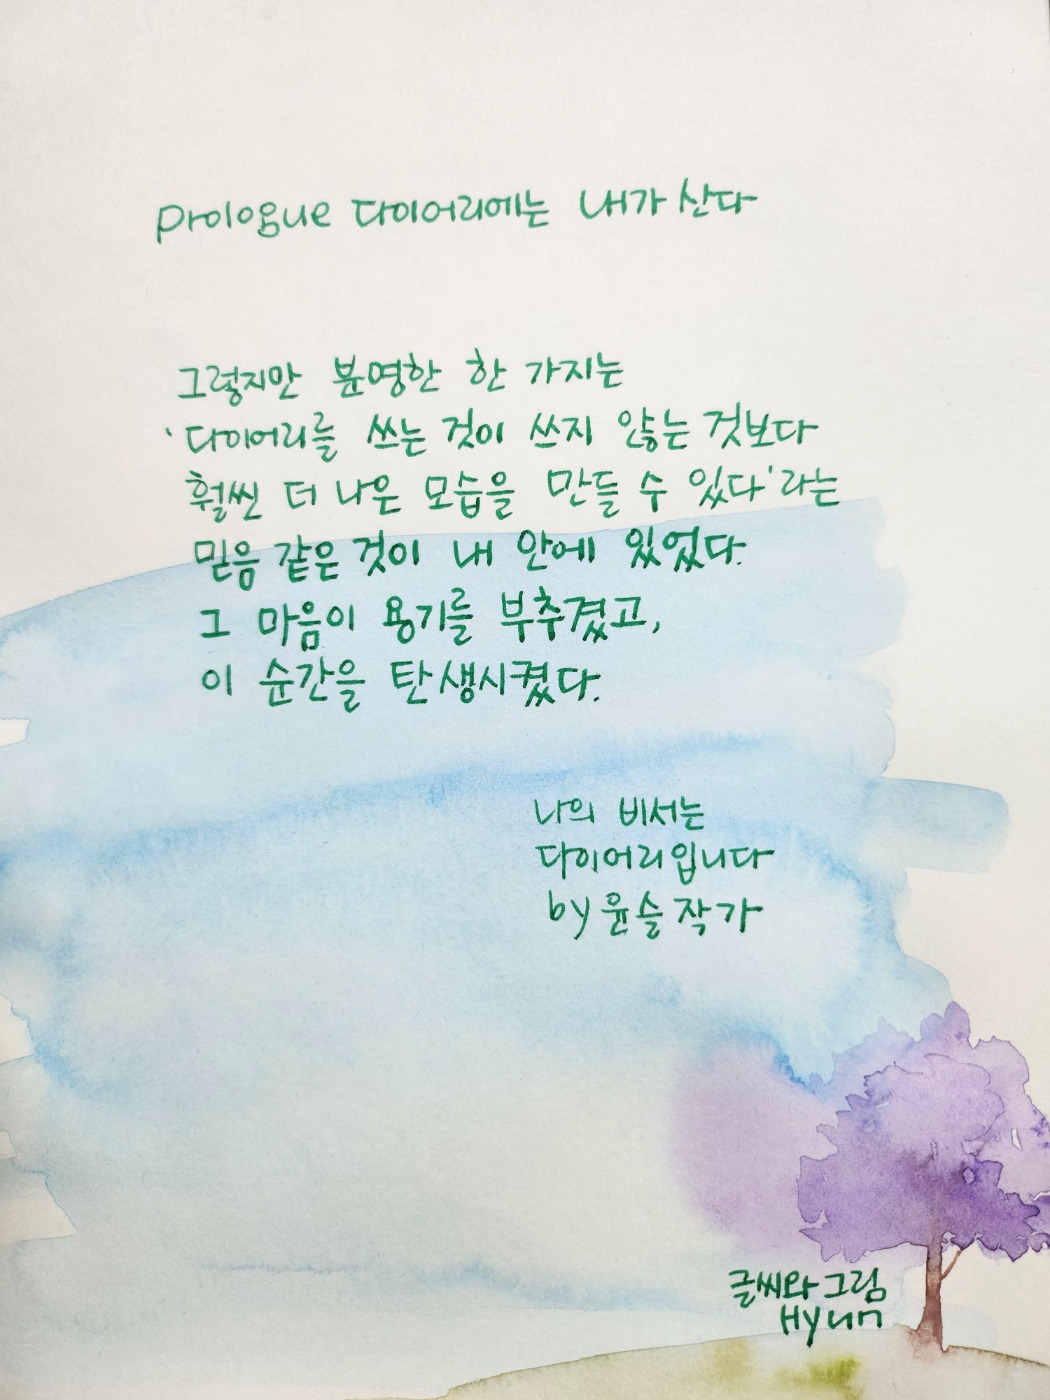 prologue 다이어리에는 내가 산다
그렇지만 분명한 한 가지는
'다이어리를 쓰는 것이 쓰지 않는 것보다
훨씬 더 나은 모습을 만들 수 있다'라는
믿음 같은 것이 내 안에 있었다.
그 마음이 용기를 부추겼고,
이 순간을 탄생시켰다.
나의 비서는
다이어리입니다
by 윤슬작가
글씨와 그림
Hyun